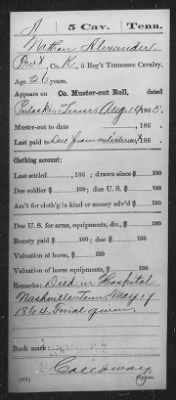 A | 5 Cav. | Tenn.
Nathan Alexander
Pvt, Co. K, 5 Reg't Tennessee Cavalry.
Age 26 years.
Appears on Co. Muster-out Roll, dated
Pulaski Tenn Aug 14, 1865.
Muster-out to date , 186 .
Last paid to , 186 .
Clothing account:
Last settled , 186 ; drawn since $ 100
Due soldier $ 100; due U. S. $ 100
Am't for cloth'g in kind or money adv'd $ 100
Due U. S. for arms, equipments, &c., $ 100
Bounty paid $ 100; due $ 100
Valuation of horse, $ 100
Valuation of horse equipments, $ 100
Remarks: Died in Hospital
Nashville Tenn May 17
1864.
Book mark:
Calloway
Copyist.